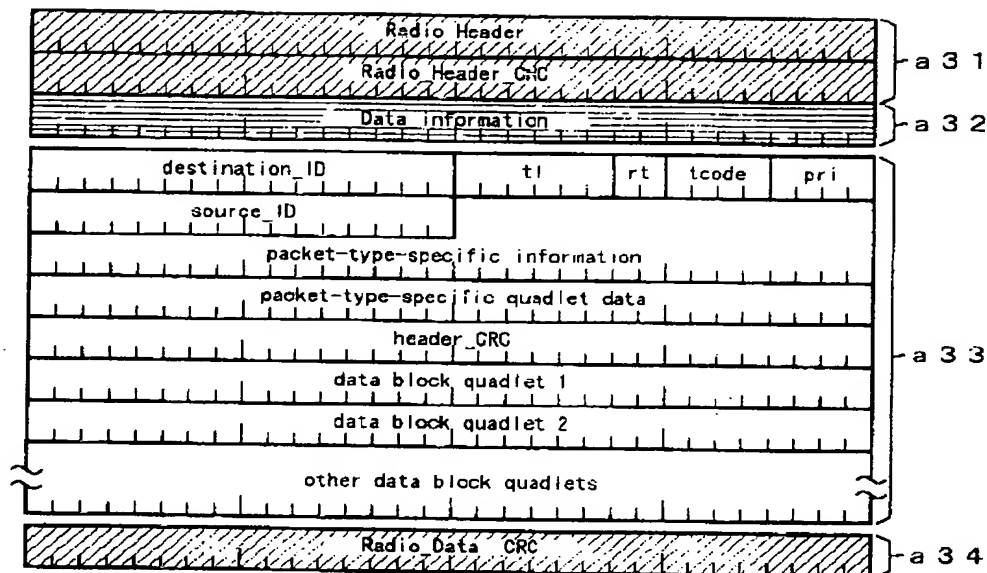 Radio Header
Radio_Header CRC
a 3 1
Data information
a 3 2
destination_ID tl rt tcode pri
source_ID
packet-type-specific information
packet-type-specific quadlet data
header_CRC
a 3 3
data block quadlet 1
data block quadlet 2
other data block quadlets
Radio_Data CRC
a 3 4